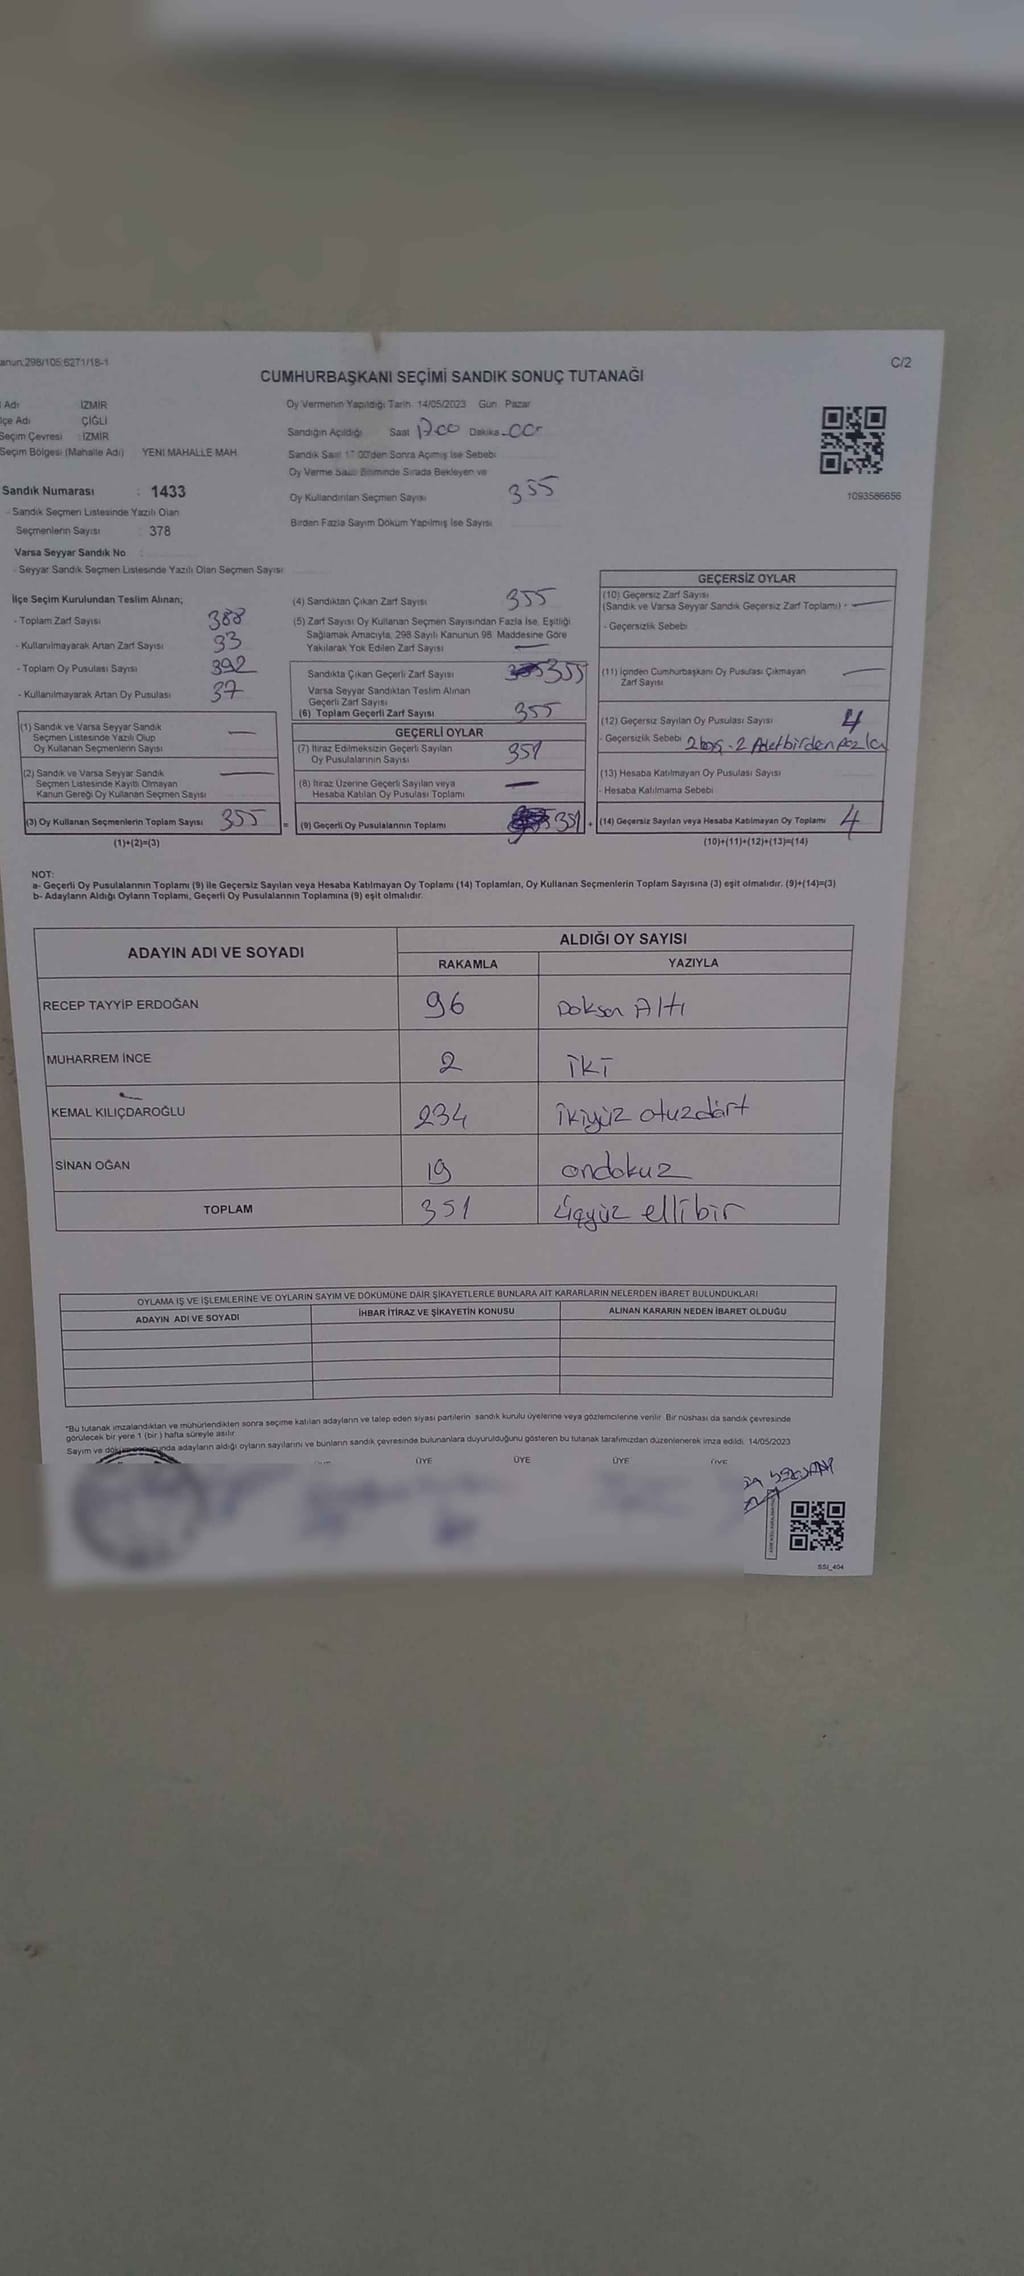 anun,298/105;6271/18-1
C/2
CUMHURBAŞKANI SEÇİMİ SANDIK SONUÇ TUTANAĞI
Adı İZMİR
lçe Adı ÇİĞLİ
Seçim Çevresi : İZMİR
Seçim Bölgesi (Mahalle Adı) YENİ MAHALLE MAH
Sandık Numarası : 1433
- Sandık Seçmen Listesinde Yazılı Olan
Seçmenlerin Sayısı : 378
Varsa Seyyar Sandık No :
- Seyyar Sandık Seçmen Listesinde Yazılı Olan Seçmen Sayısı
Oy Vermenin Yapıldığı Tarih 14/05/2023 Gün Pazar
Sandığın Açıldığı Saat 17.00 Dakika
Sandık Saat 17:00'den Sonra Açımış İse Sebebi
Oy Verme Saati Bitiminde Sırada Bekleyen ve
Oy Kullandırılan Seçmen Sayısı 355
Birden Fazla Sayım Döküm Yapılmış İse Sayısı
1093586656
İlçe Seçim Kurulundan Teslim Alınan;
- Toplam Zarf Sayısı 388
- Kullanılmayarak Artan Zarf Sayısı 33
- Toplam Oy Pusulası Sayısı 392
- Kullanılmayarak Artan Oy Pusulası 37
(1) Sandık ve Varsa Seyyar Sandık
Seçmen Listesinde Yazılı Olup
Oy Kullanan Seçmenlerin Sayısı —
(2) Sandık ve Varsa Seyyar Sandık
Seçmen Listesinde Kayıtlı Olmayan
Kanun Gereği Oy Kullanan Seçmen Sayısı —
(3) Oy Kullanan Seçmenlerin Toplam Sayısı 355 =
(1)+(2)=(3)
(4) Sandıktan Çıkan Zarf Sayısı 355
(5) Zarf Sayısı Oy Kullanan Seçmen Sayısından Fazla İse, Eşitliği
Sağlamak Amacıyla, 298 Sayılı Kanunun 98. Maddesine Göre
Yakılarak Yok Edilen Zarf Sayısı —
Sandıkta Çıkan Geçerli Zarf Sayısı 355
Varsa Seyyar Sandıktan Teslim Alınan
Geçerli Zarf Sayısı
(6) Toplam Geçerli Zarf Sayısı 355
GEÇERLİ OYLAR
(7) İtiraz Edilmeksizin Geçerli Sayılan
Oy Pusulalarının Sayısı 351
(8) İtiraz Üzerine Geçerli Sayılan veya
Hesaba Katılan Oy Pusulası Toplamı —
(9) Geçerli Oy Pusulalarının Toplamı 351 +
GEÇERSİZ OYLAR
(10) Geçersiz Zarf Sayısı
(Sandık ve Varsa Seyyar Sandık Geçersiz Zarf Toplamı) - —
- Geçersizlik Sebebi
(11) İçinden Cumhurbaşkanı Oy Pusulası Çıkmayan
Zarf Sayısı —
(12) Geçersiz Sayılan Oy Pusulası Sayısı 4
- Geçersizlik Sebebi 2 boş - 2 Adet birden fazla
(13) Hesaba Katılmayan Oy Pusulası Sayısı
- Hesaba Katılmama Sebebi
(14) Geçersiz Sayılan veya Hesaba Katılmayan Oy Toplamı 4
(10)+(11)+(12)+(13)=(14)
NOT:
a- Geçerli Oy Pusulalarının Toplamı (9) ile Geçersiz Sayılan veya Hesaba Katılmayan Oy Toplamı (14) Toplamları, Oy Kullanan Seçmenlerin Toplam Sayısına (3) eşit olmalıdır. (9)+(14)=(3)
b- Adayların Aldığı Oyların Toplamı, Geçerli Oy Pusulalarının Toplamına (9) eşit olmalıdır.
ADAYIN ADI VE SOYADI ALDIĞI OY SAYISI
RAKAMLA YAZIYLA
RECEP TAYYİP ERDOĞAN 96 Doksan Altı
MUHARREM İNCE 2 İKİ
KEMAL KILIÇDAROĞLU 234 İkiyüz otuzdört
SİNAN OĞAN 19 ondokuz
TOPLAM 351 Üçyüz ellibir
OYLAMA İŞ VE İŞLEMLERİNE VE OYLARIN SAYIM VE DÖKÜMÜNE DAİR ŞİKAYETLERLE BUNLARA AİT KARARLARIN NELERDEN İBARET BULUNDUKLARI
ADAYIN ADI VE SOYADI İHBAR İTİRAZ VE ŞİKAYETİN KONUSU ALINAN KARARIN NEDEN İBARET OLDUĞU
*Bu tutanak imzalandıktan ve mühürlendikten sonra seçime katılan adayların ve talep eden siyasi partilerin sandık kurulu üyelerine veya gözlemcilerine verilir. Bir nüshası da sandık çevresinde
görülecek bir yere 1 (bir) hafta süreyle asılır.
Sayım ve döküm sonucunda adayların aldığı oyların sayılarını ve bunların sandık çevresinde bulunanlara duyurulduğunu gösteren bu tutanak tarafımızdan düzenlenerek imza edildi. 14/05/2023
ÜYE ÜYE ÜYE ÜYE
SSI_404